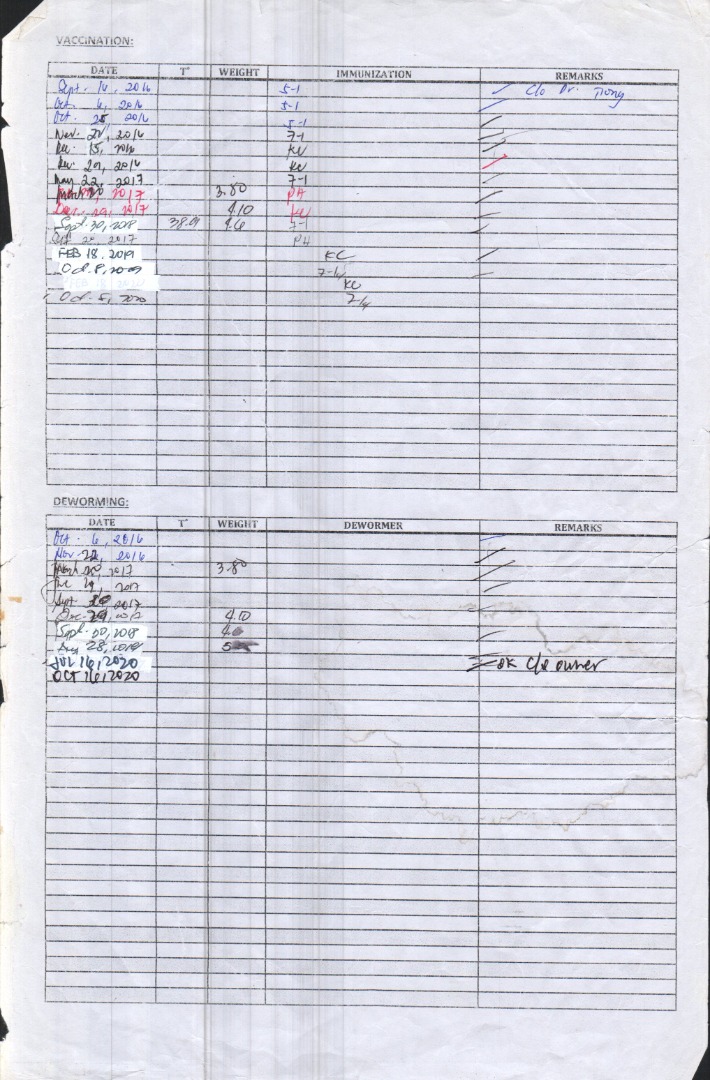 VACCINATION:
DATE T° WEIGHT IMMUNIZATION REMARKS
Sept. 16, 2016 5-1 c/o Dr.
Oct. 6, 2016 5-1
Oct. 25 2016 5-1
Nov. 2016 7-1
Dec. 15, 2016 KC
Dec. 29, 2016 KC
May 22, 2017 7-1
2017 3.80 PH
Dec. 29, 2017 4.10 KC
Sept. 30, 2018 7-1
2017 PH
FEB 18, 2019 KC
Oct. 8, 7-1
KC
Oct. 5, 2020
DEWORMING:
DATE T° WEIGHT DEWORMER REMARKS
Oct. 6, 2016
Nov. 22, 2016
2017 3.80
2017
Sept 2017
Dec. 4.10
Sept. 30, 2018
Aug 28, 2019
JUL 16, 2020 OK c/o owner
OCT 16, 2020